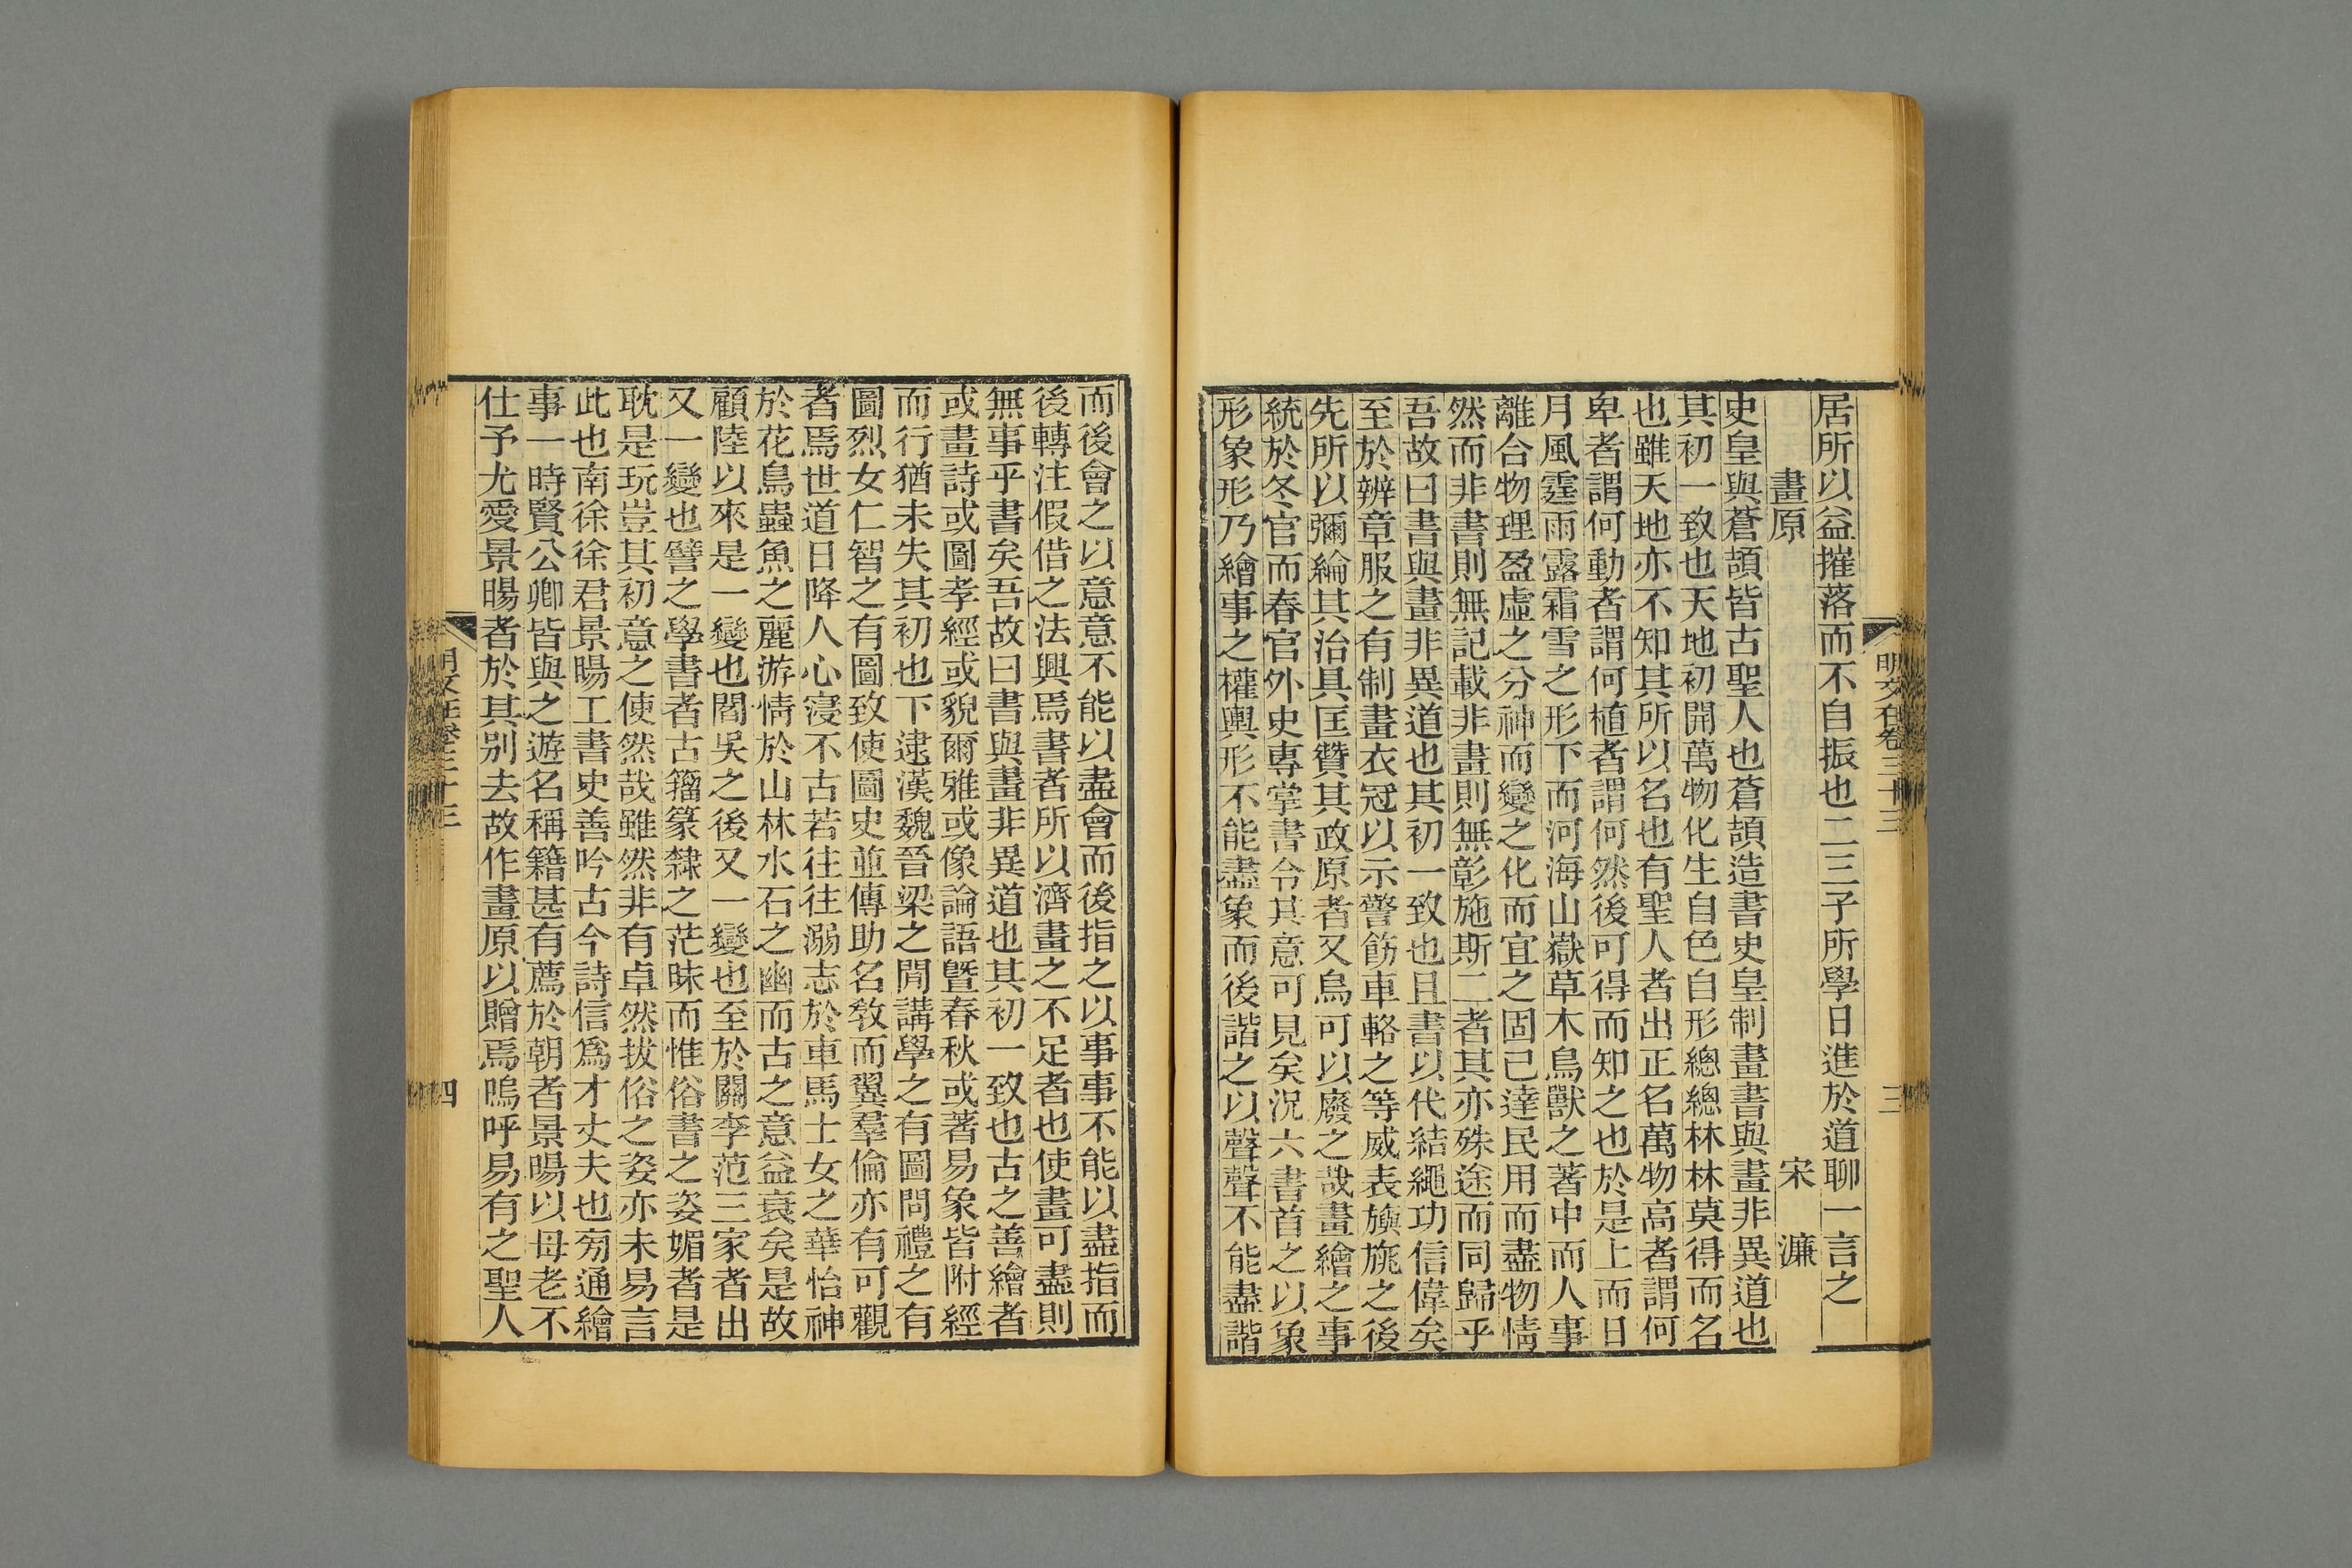 明文在卷三十三
三
居所以益摧落而不自振也二三子所學日進於道聊一言之
畫原
宋濂
史皇與蒼頡皆古聖人也蒼頡造書史皇制畫書與畫非異道也
其初一致也天地初開萬物化生自色自形總總林林莫得而名
也雖天地亦不知其所以名也有聖人者出正名萬物高者謂何
卑者謂何動者謂何植者謂何然後可得而知之也於是上而日
月風霆雨露霜雪之形下而河海山嶽草木鳥獸之著中而人事
離合物理盈虛之分神而變之化而宜之固已達民用而盡物情
然而非書則無記載非畫則無彰施斯二者其亦殊途而同歸乎
吾故曰書與畫非異道也其初一致也且書以代結繩功信偉矣
至於辨章服之有制畫衣冠以示警飭車輅之等威表旟旐之後
先所以彌綸其治具匡贊其政原者又烏可以廢之哉畫繪之事
統於冬官而春官外史專掌書令其意可見矣況六書首之以象
形象形乃繪事之權輿形不能盡象而後諧之以聲聲不能盡諧
而後會之以意意不能以盡會而後指之以事事不能以盡指而
後轉注假借之法興焉書者所以濟畫之不足者也使畫可盡則
無事乎書矣吾故曰書與畫非異道也其初一致也古之善繪者
或畫詩或圖孝經或貌爾雅或像論語暨春秋或著易象皆附經
而行猶未失其初也下逮漢魏晉梁之間講學之有圖問禮之有
圖烈女仁智之有圖致使圖史並傳助名敎而翼羣倫亦有可觀
者焉世道日降人心寖不古若往往溺志於車馬士女之華怡神
於花鳥蟲魚之麗游情於山林水石之幽而古之意益衰矣是故
顧陸以來是一變也閻吳之後又一變也至於關李范三家者出
又一變也譬之學書者古籀篆隸之茫昧而惟俗書之姿媚者是
耽是玩豈其初意之使然哉雖然非有卓然拔俗之姿亦未易言
此也南徐徐君景暘工書史善吟古今詩信爲才丈夫也旁通繪
事一時賢公卿皆與之遊名稱籍甚有薦於朝者景暘以母老不
仕予尤愛景暘者於其別去故作畫原以贈焉嗚呼易有之聖人
明文在卷三十三
四